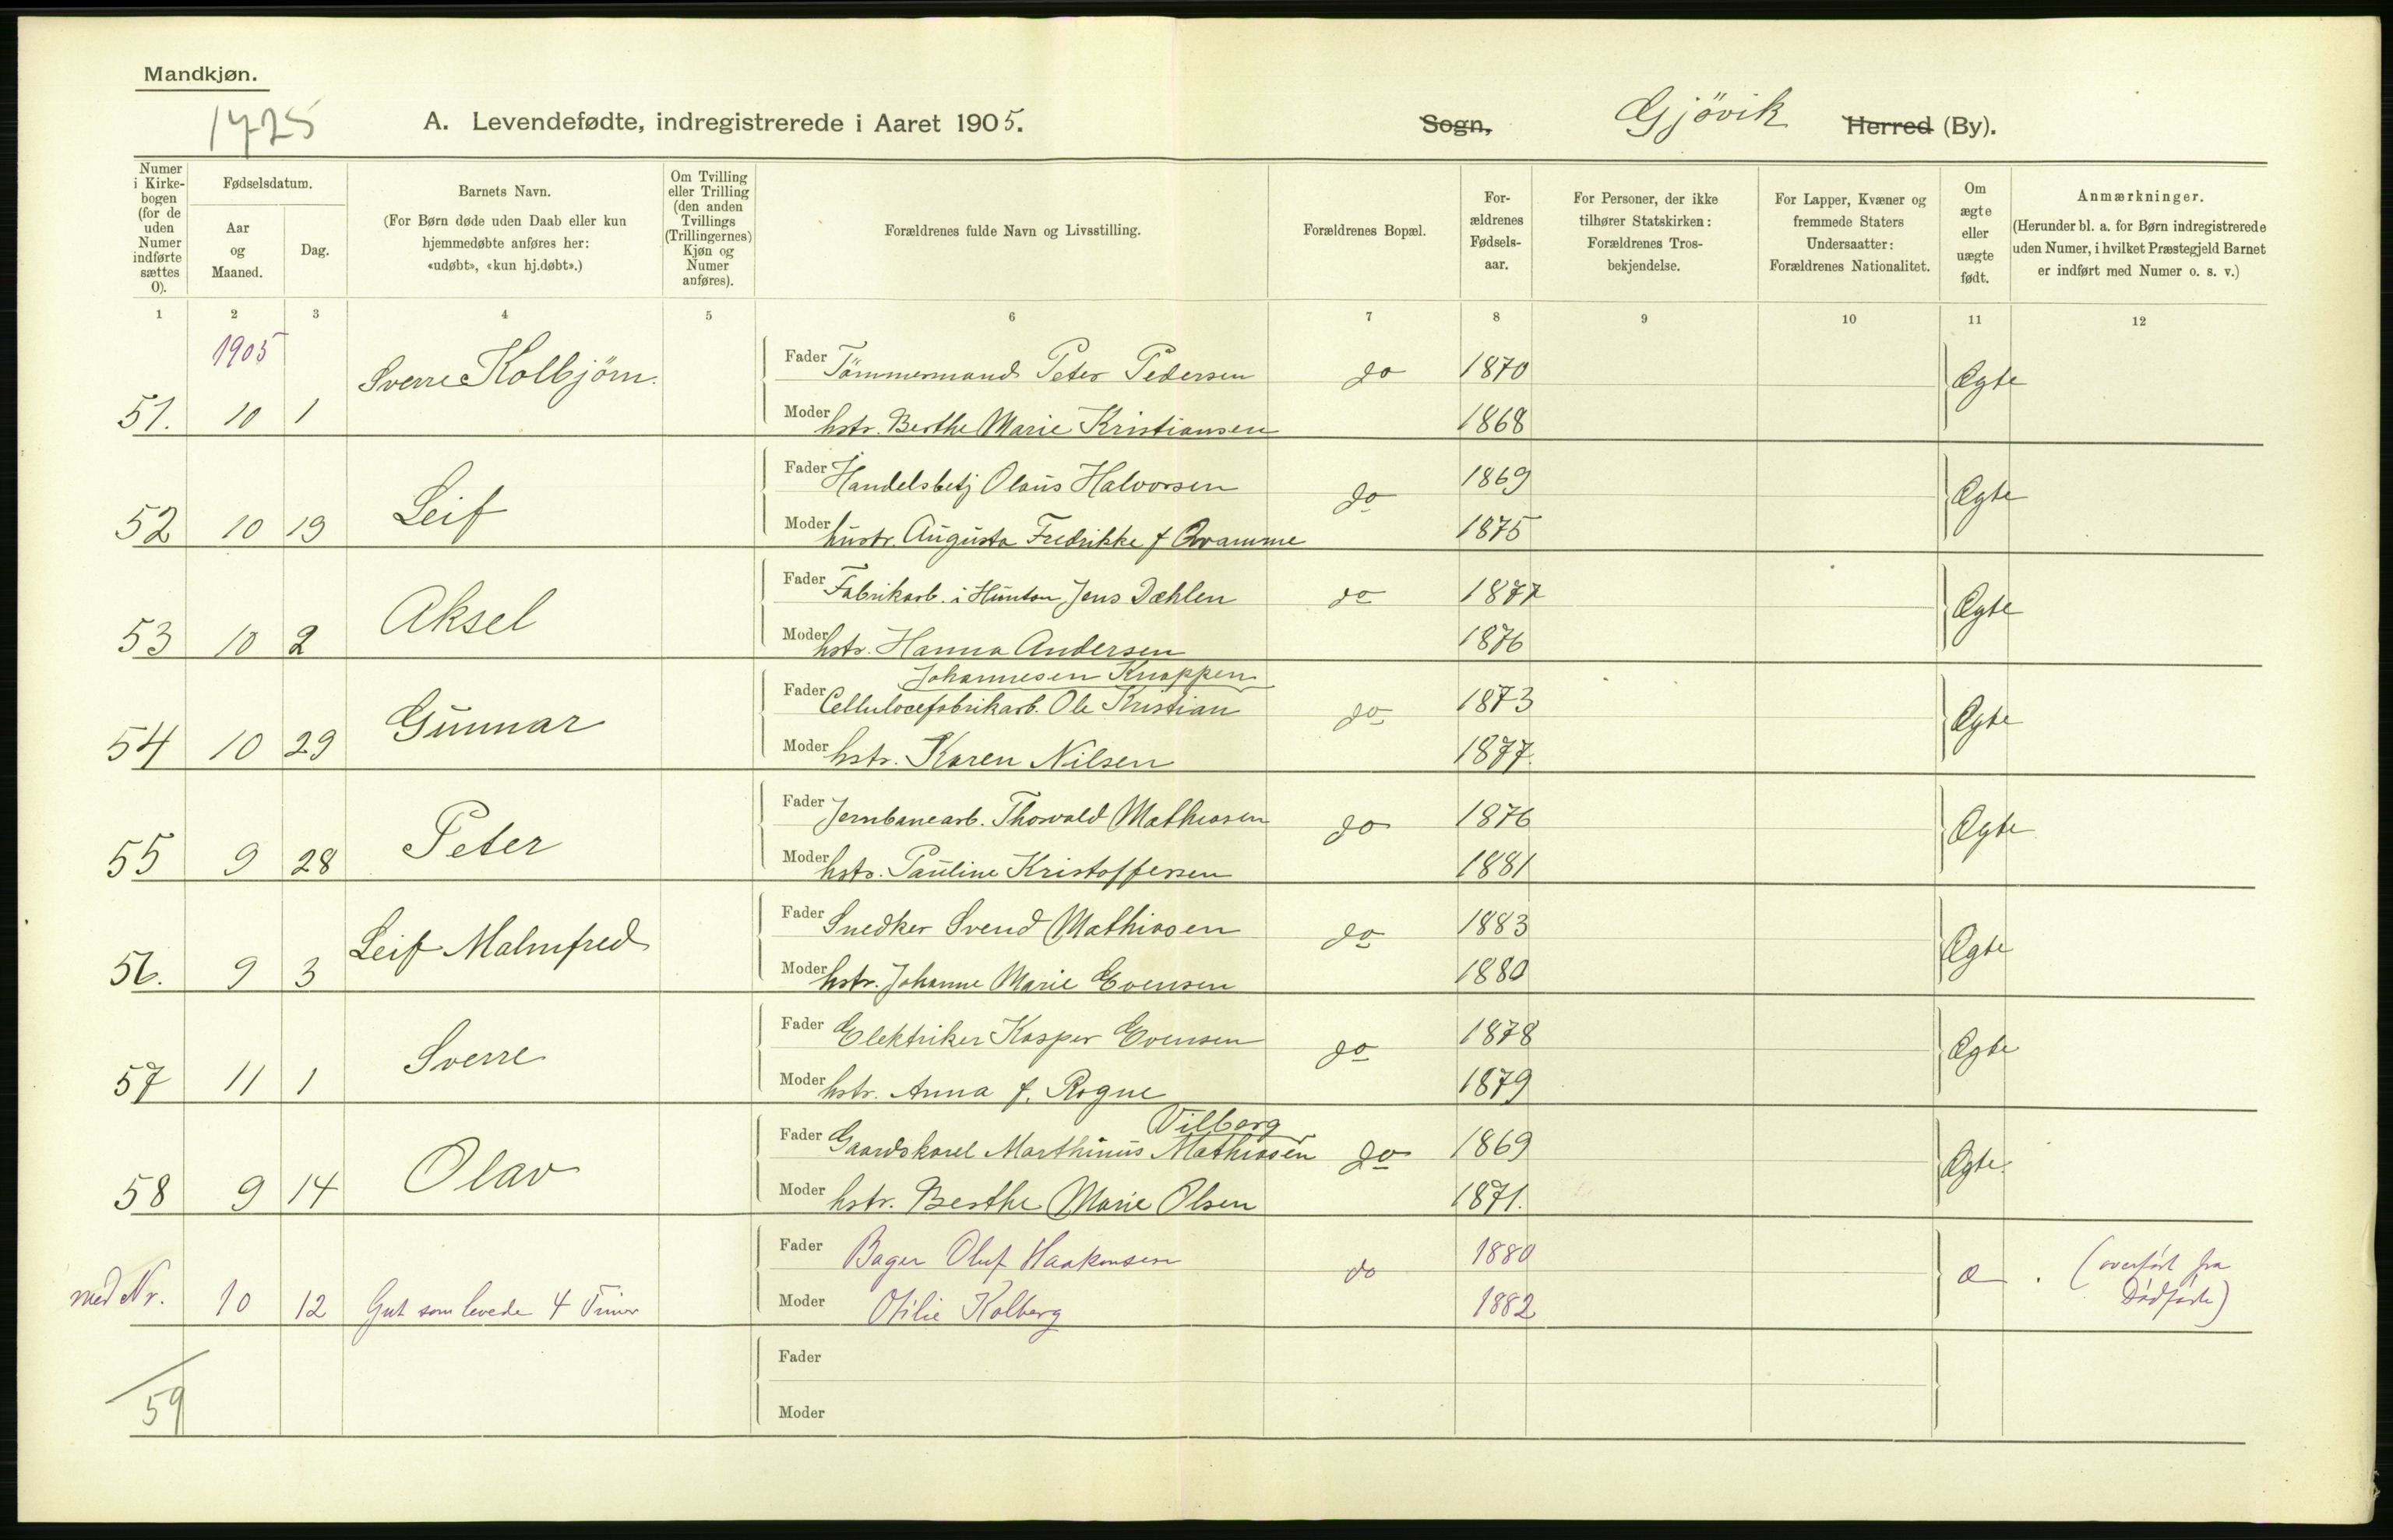 Mandkjøn.
1725
A. Levendefødte, indregistrerede i Aaret 1905.
Sogn, Gjövik Herred (By).
Numer i Kirkebogen (for de uden Numer indførte sættes 0).
Fødselsdatum.
Aar og Maaned.
Dag.
Barnets Navn.
(For Børn døde uden Daab eller kun hjemmedøbte anføres her: «udøbt», «kun hj.døbt».)
Om Tvilling eller Trilling (den anden Tvillings (Trillingernes) Kjøn og Numer anføres).
Forældrenes fulde Navn og Livsstilling.
Forældrenes Bopæl.
For-ældrenes Fødsels-aar.
For Personer, der ikke tilhører Statskirken: Forældrenes Tros-bekjendelse.
For Lapper, Kvæner og fremmede Staters Undersaatter: Forældrenes Nationalitet.
Om ægte eller uægte født.
Anmærkninger.
(Herunder bl. a. for Børn indregistrerede uden Numer, i hvilket Præstegjeld Barnet er indført med Numer o. s. v.)
1 2 3 4 5 6 7 8 9 10 11 12
1905
51. 10 1 Sverre Kolbjörn.
Fader Tömmermand Peter Pedersen do 1870 Ægte
Moder hstr. Berthe Marie Kristiansen 1868
52 10 19 Leif
Fader Handelsbetj Olaus Halvorsen do 1869 Ægte
Moder hustr. Augusta Fredrikke f Qvamme 1875
53 10 2 Aksel
Fader Fabrikarb. i Hunton Jens Dæhlen do 1877 Ægte
Moder hstr. Hanna Andersen 1876
54 10 29 Gunnar
Johannesen Knappen
Fader Cellulocefabrikarb. Ole Kristian do 1873 Ægte
Moder hstr. Karen Nilsen 1877.
55 9 28 Peter
Fader Jernbanearb. Thorvald Mathiasen do 1876 Ægte
Moder hstr. Pauline Kristoffersen 1881
56. 9 3 Leif Malmfred
Fader Snedker Svend Mathiasen do 1883 Ægte
Moder hstr. Johanne Marie Evensen 1880
57 11 1 Sverre
Fader Elektriker Kasper Evensen do 1878 Ægte
Moder hstr. Anna f. Rogne 1879
58 9 14 Olav
Vilberg
Fader Gaardskarl Marthinus Mathiasen do 1869 Ægte
Moder hstr. Berthe Marie Olsen 1871.
med Nr. 10 12 Gut som levede 4 Timer
Fader Bager Oluf Haakensen do 1880 æ . (overført fra Dødfødte)
Moder Otilie Kolberg 1882
Fader
59
Moder